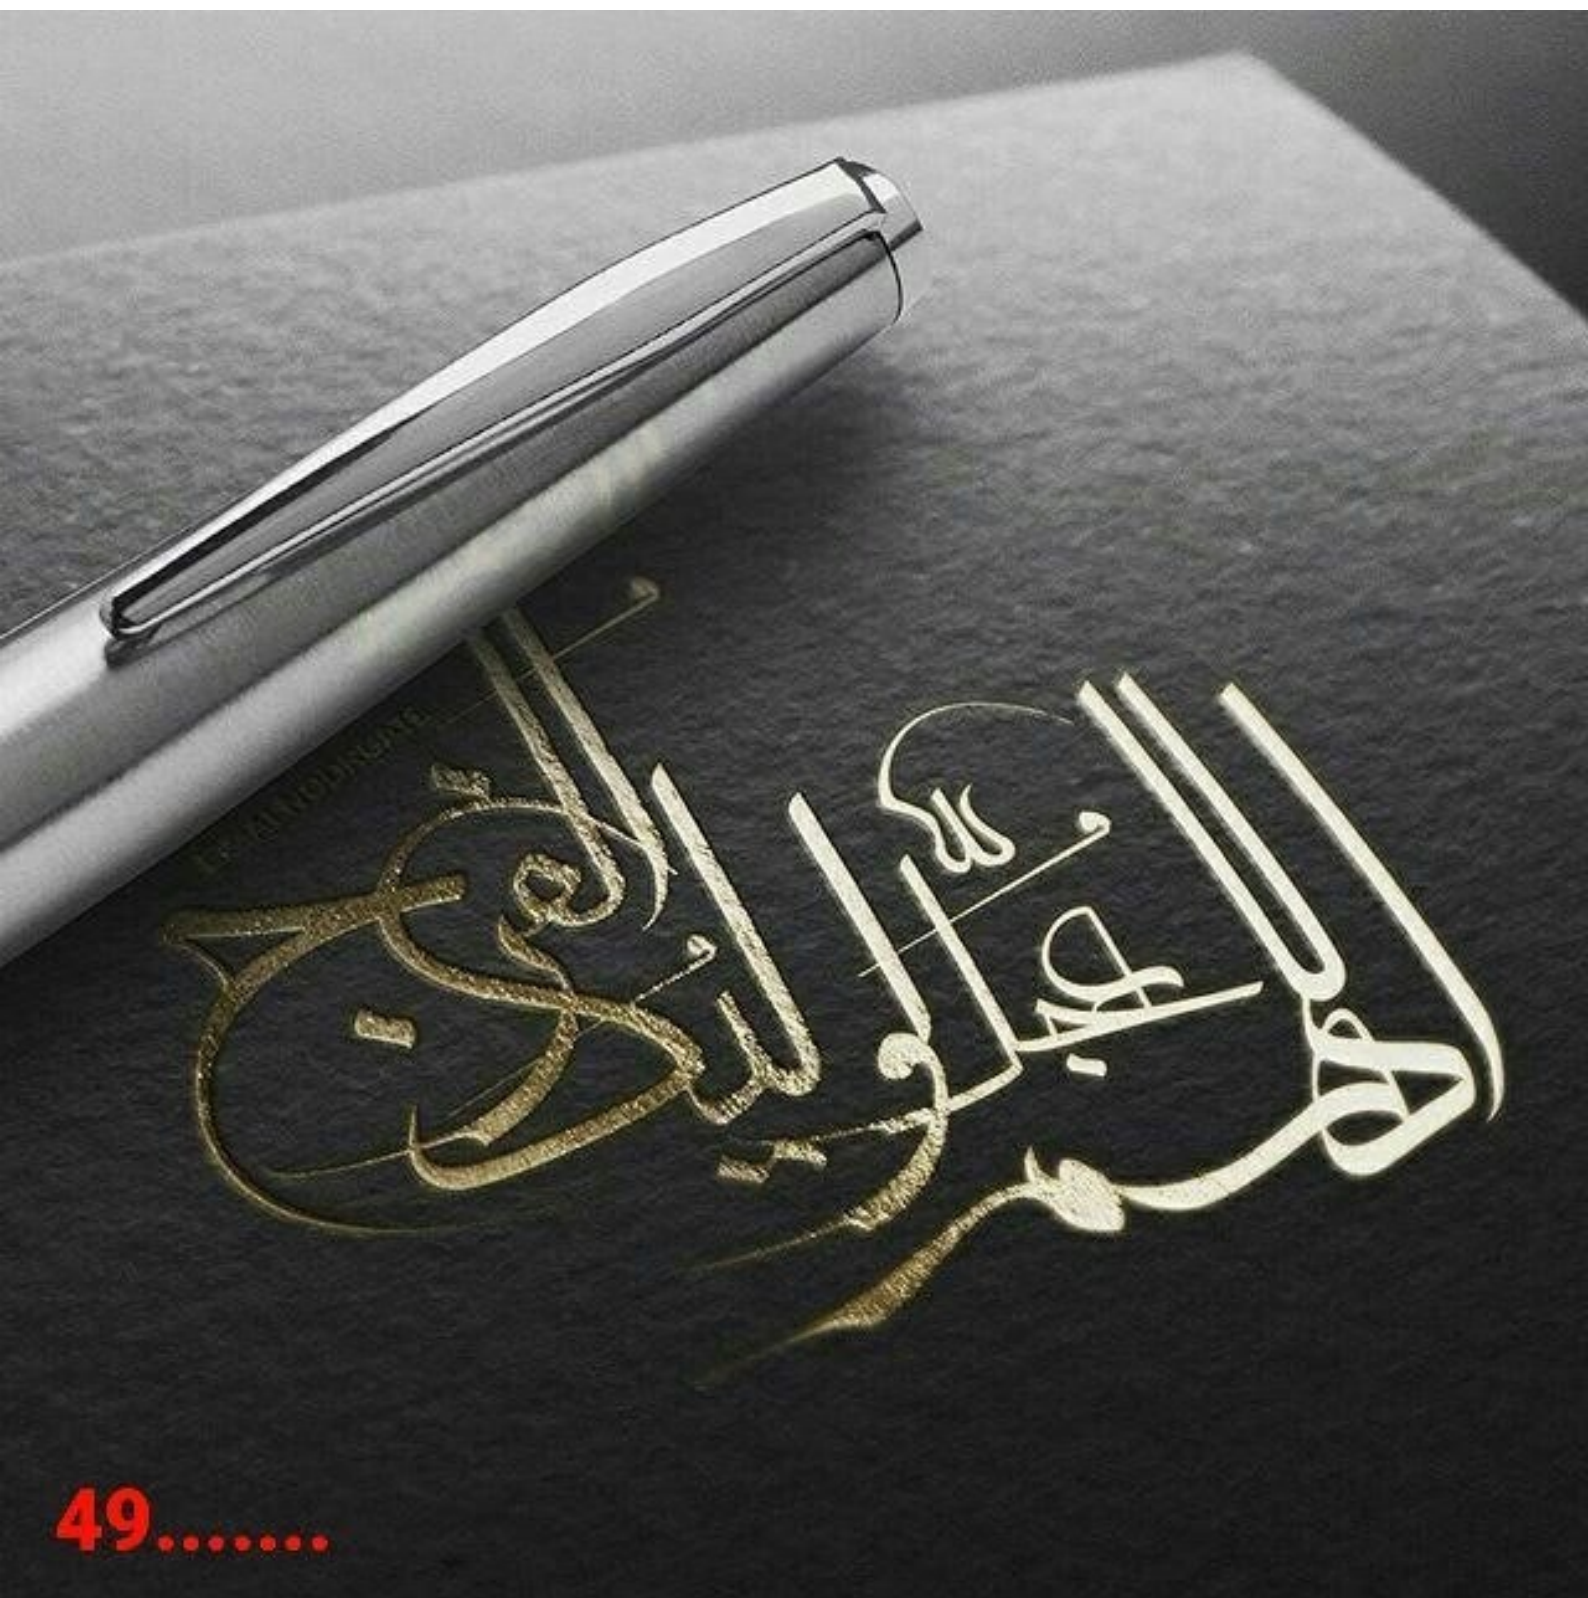 اللهم عجل لولیک الفرج
49.......